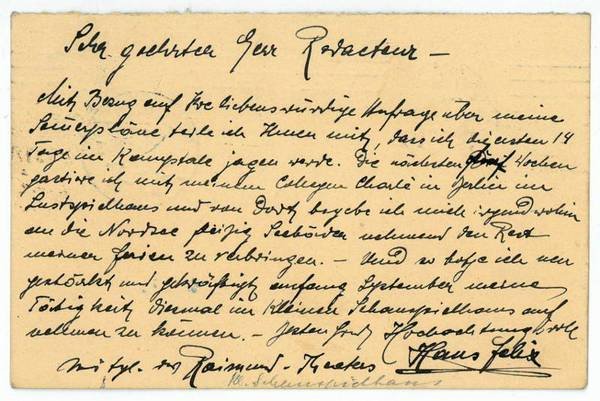 Sehr geehrter Herr Redacteur –
Mit Bezug auf Ihre liebenswürdige Anfrage über meine
Sommerpläne teile ich Ihnen mit, dass ich die ersten 14
Tage im Kamptale jagen werde. Die nächsten Wochen
gastiere ich mit meinem Collegen Charlé in Berlin im
Lustspielhaus und von Dort begebe ich mich irgendwohin
an die Nordsee fleißig Seebäder nehmend den Rest
meiner Ferien zu verbringen. – Und so hoffe ich neu
gestärkt und gekräftigt anfang September meine
Tätigkeit diesmal im Kleinen Schauspielhaus auf
nehmen zu können. – Hochachtungsvoll
Hans Felix
Mitgl. des Raimund-Theaters
Kl. Schauspielhaus